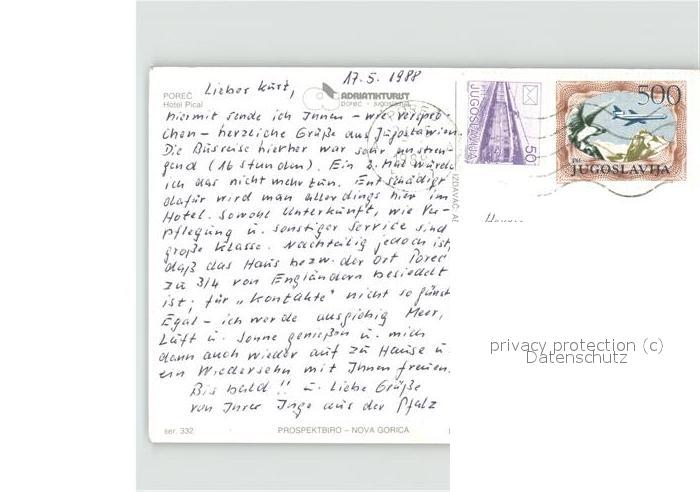 17.5.1988
POREČ
Hotel Pical
ADRIATIKTURIST
poreč - jugoslavija
Lieber Kurt,
hiermit sende ich Ihnen – wie verspro-
chen – herzliche Grüße aus Jugoslawien.
Die Ausreise hierher war sehr anstren-
gend (16 Stunden). Ein 2. Mal würde
ich das nicht mehr tun. Entschädigt
dafür wird man allerdings hier im
Hotel. Sowohl Unterkunft, wie Ver-
pflegung u. sonstiger Service sind
große Klasse. Nachteilig jedoch ist,
daß das Haus bezw. der Ort Porec
zu 3/4 von Engländern besiedelt
ist; für „Kontakte" nicht so günst
Egal – ich werde ausgiebig Meer,
Luft u. Sonne genießen u. mich
dann auch wieder auf zu Hause u.
ein Wiedersehn mit Ihnen freuen.
Bis bald!! u. liebe Grüße
von Ihrer Inge aus der Pfalz
ser. 332
PROSPEKTBIRO – NOVA GORICA
IZDAVAČ: AD
JUGOSLAVIJA
50
500
JUGOSLAVIJA
privacy protection (c)
Datenschutz